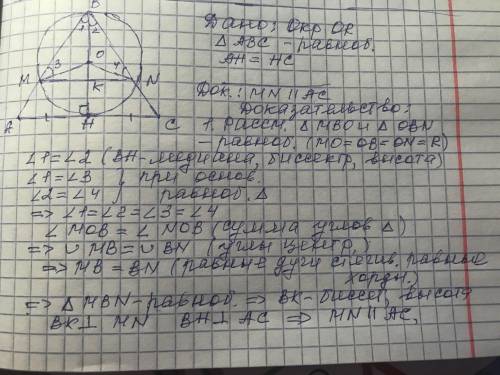 B
1 2
O
M 3 4 N
K
A H C
Дано: Окр OR
△ABC - равноб.
AH = HC
Док.: MN || AC
Доказательство:
1. Рассм. △MBO и △OBN
- равноб. (MO=OB=ON=R)
∠1=∠2 (BH-медиана, биссектр, высота)
∠1=∠3 } при основ.
∠2=∠4 } равноб. △
=> ∠1=∠2=∠3=∠4
∠MOB = ∠NOB (сумма углов △)
=> ∪ MB = ∪ BN (углы центр.)
=> MB = BN (равные дуги стягив. равные
хорды)
=> △MBN-равноб. => BK-биссект, высота
BK⊥ MN BH⊥ AC => MN || AC.